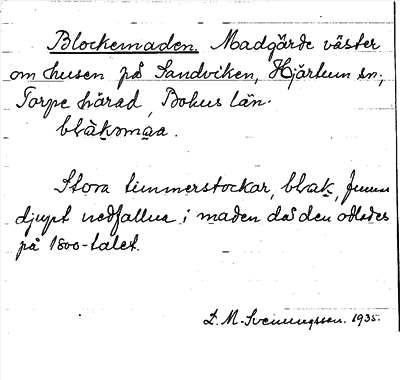 Blockemaden. Madgärde väster
om husen på Sandviken, Hjärtum sn.,
Torpe härad, Bohus län.
blåkmaa.
Stora timmerstockar, blak, funna
djupt nedfallna i maden då den odlades
på 1800-talet.
L. M. Svenungsson. 1935.